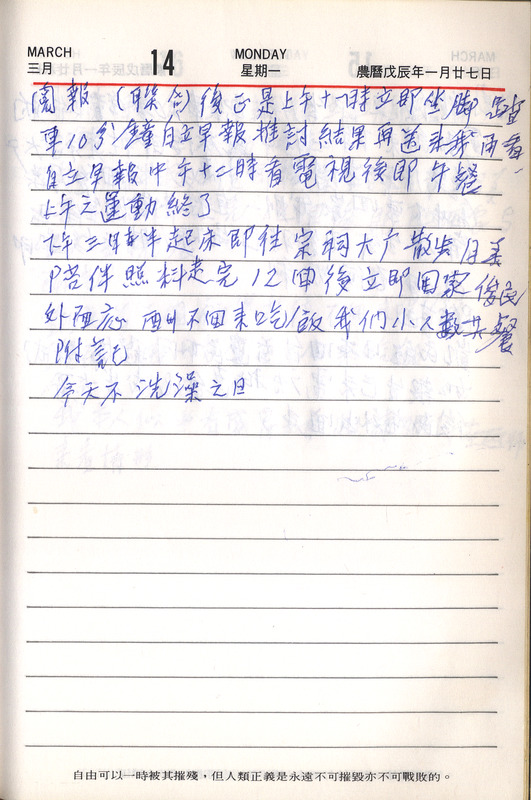 MARCH 14 MONDAY
三月 星期一 農曆戊辰年一月廿七日
閱報(聯合)後正是上午十一時立即坐腳踏
車10分鐘自立早報推討結果再送來我雨看
自立早報中午十二時看電視後即午餐
上午之運動終了
下午三時半起床即往宗祠大广散步月美
陪伴照料走完12回後立即回家俊宏
外面应酬不回来吃飯我們小人數共餐
附記
今天不洗澡之日
自由可以一時被其摧殘,但人類正義是永遠不可摧毀亦不可戰敗的。